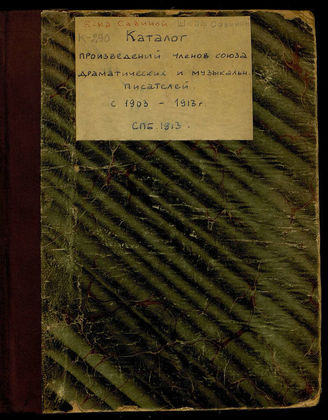 Савиной
К-290 Каталог
произведений членов союза
драматических и музыкальн.
писателей.
с 1903 - 1913 г.
СПБ. 1913.